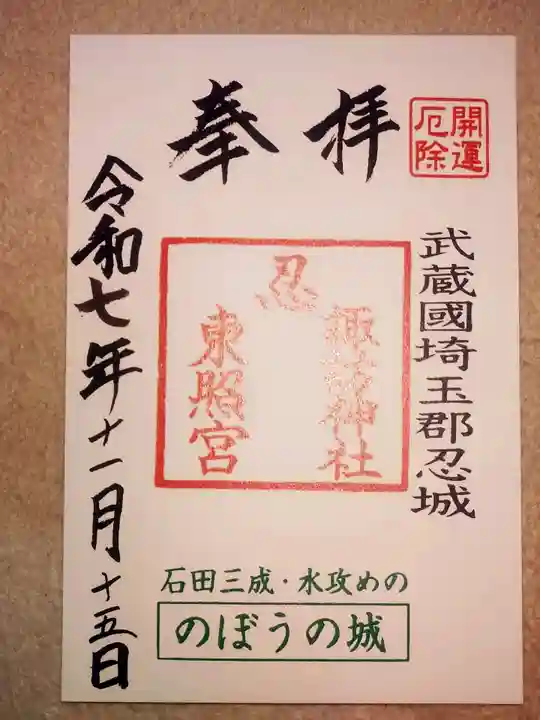 開運
厄除
武蔵國埼玉郡忍城
奉拝
忍
諏訪神社
東照宮
令和七年十一月十五日
石田三成・水攻めの
のぼうの城